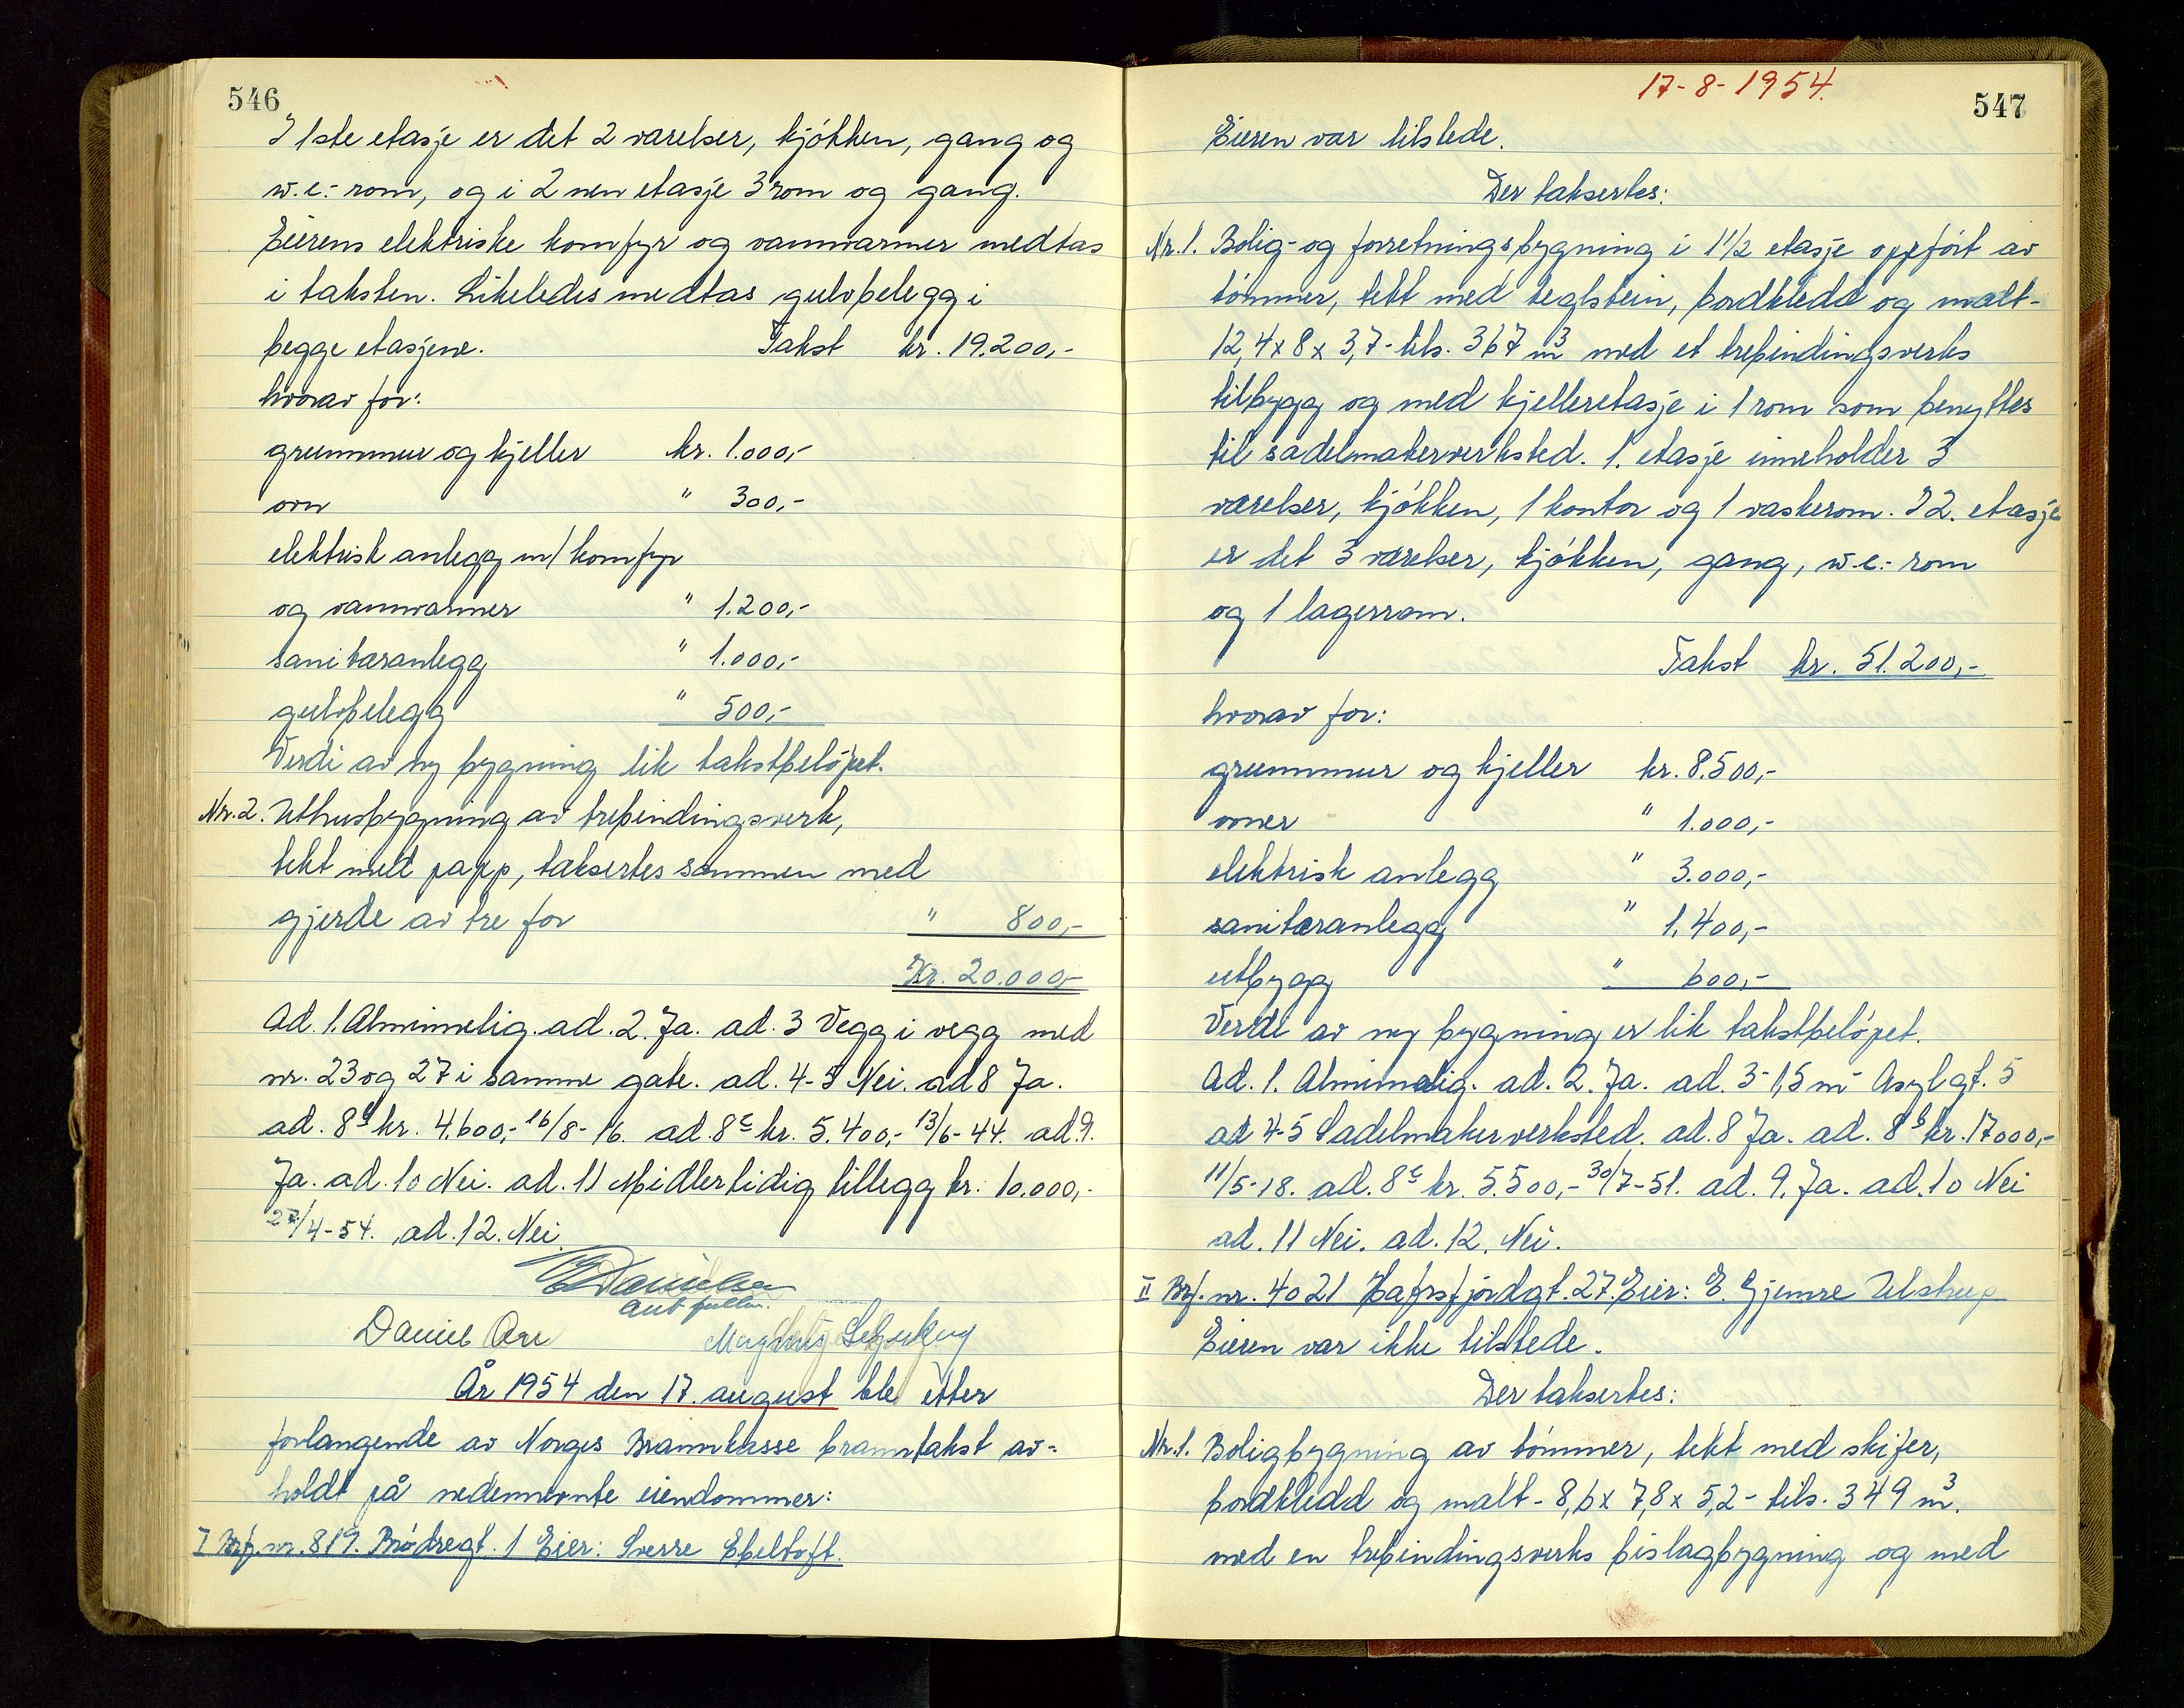 546
I 1ste etasje er det 2 værelser, kjøkken, gang og
w.c.- rom, og i 2 nen etasje 3 rom og gang.
Eierens elektriske komfyr og vannvarmer medtas
i taksten. Likeledes medtas gulvbelegg i
begge etasjene. Takst kr. 19.200,-
hvorav for:
grunnmur og kjeller kr. 1.000,-
ovn " 300,-
elektrisk anlegg m/ komfyr
og vannvarmer " 1.200,-
sanitæranlegg " 1.000,-
gulvbelegg " 500,-
Verdi av ny bygning lik takstbeløpet.
Nr. 2. Uthusbygning av trebindingsverk,
tekt med papp, taksertes sammen med
gjerde av tre for " 800,-
Kr. 20.000,-
Ad. 1. Alminnelig. ad. 2. Ja. ad. 3 Vegg i vegg med
nr. 23 og 27 i samme gate. ad. 4-5 Nei. ad 8 Ja.
ad. 8b kr. 4.600,- 16/8-16. ad. 8c kr. 5.400,- 13/6-44. ad. 9.
Ja. ad. 10 Nei. ad. 11 Midlertidig tillegg kr. 10.000,-
27/4-54. ad. 12. Nei.
Danielsen
Daniel
År 1954 den 17. august ble etter
forlangende av Norges Brannkasse branntakst av-
holdt på nedennevnte eiendommer:
I Brf. nr. 819. Brødregt. 1 Eier: Sverre Ebeltoft.
17-8-1954.
547
Eieren var tilstede.
Der taksertes:
Nr. 1. Bolig- og forretningsbygning i 1 1/2 etasje oppført av
tømmer, tekt med teglstein, bordkledd og malt-
12,4 x 8 x 3,7 - tils. 367 m3 med et trebindingsverks
tilbygg og med kjelleretasje i 1 rom som benyttes
til sadelmakerverksted. 1. etasje inneholder 3
værelser, kjøkken, 1 kontor og 1 vaskerom. I 2. etasje
er det 3 værelser, kjøkken, gang, w.c.- rom
og 1 lagerrom.
Takst kr. 51.200,-
hvorav for:
grunnmur og kjeller kr. 8.500,-
ovner " 1.000,-
elektrisk anlegg " 3.000,-
sanitæranlegg " 1.400,-
utbygg " 600,-
Verdi av ny bygning er lik takstbeløpet.
Ad. 1. Alminnelig. ad. 2. Ja. ad. 3- 1,5 m - Asylgt. 5
ad 4-5 Sadelmakerverksted. ad. 8 Ja. ad. 8b kr. 17000,-
11/5-18. ad. 8c kr. 5.500,- 30/7-51. ad. 9. Ja. ad. 10 Nei
ad. 11 Nei. ad. 12. Nei.
II Brf. nr. 4021 Hafrsfjordgt. 27. Eier: E. Gjemre Ulstrup
Eieren var ikke tilstede.
Der taksertes:
Nr. 1. Boligbygning av tømmer, tekt med skifer,
bordkledd og malt - 8,6 x 7,8 x 5,2 - tils. 349 m3.
med en trebindingsverks bislagbygning og med